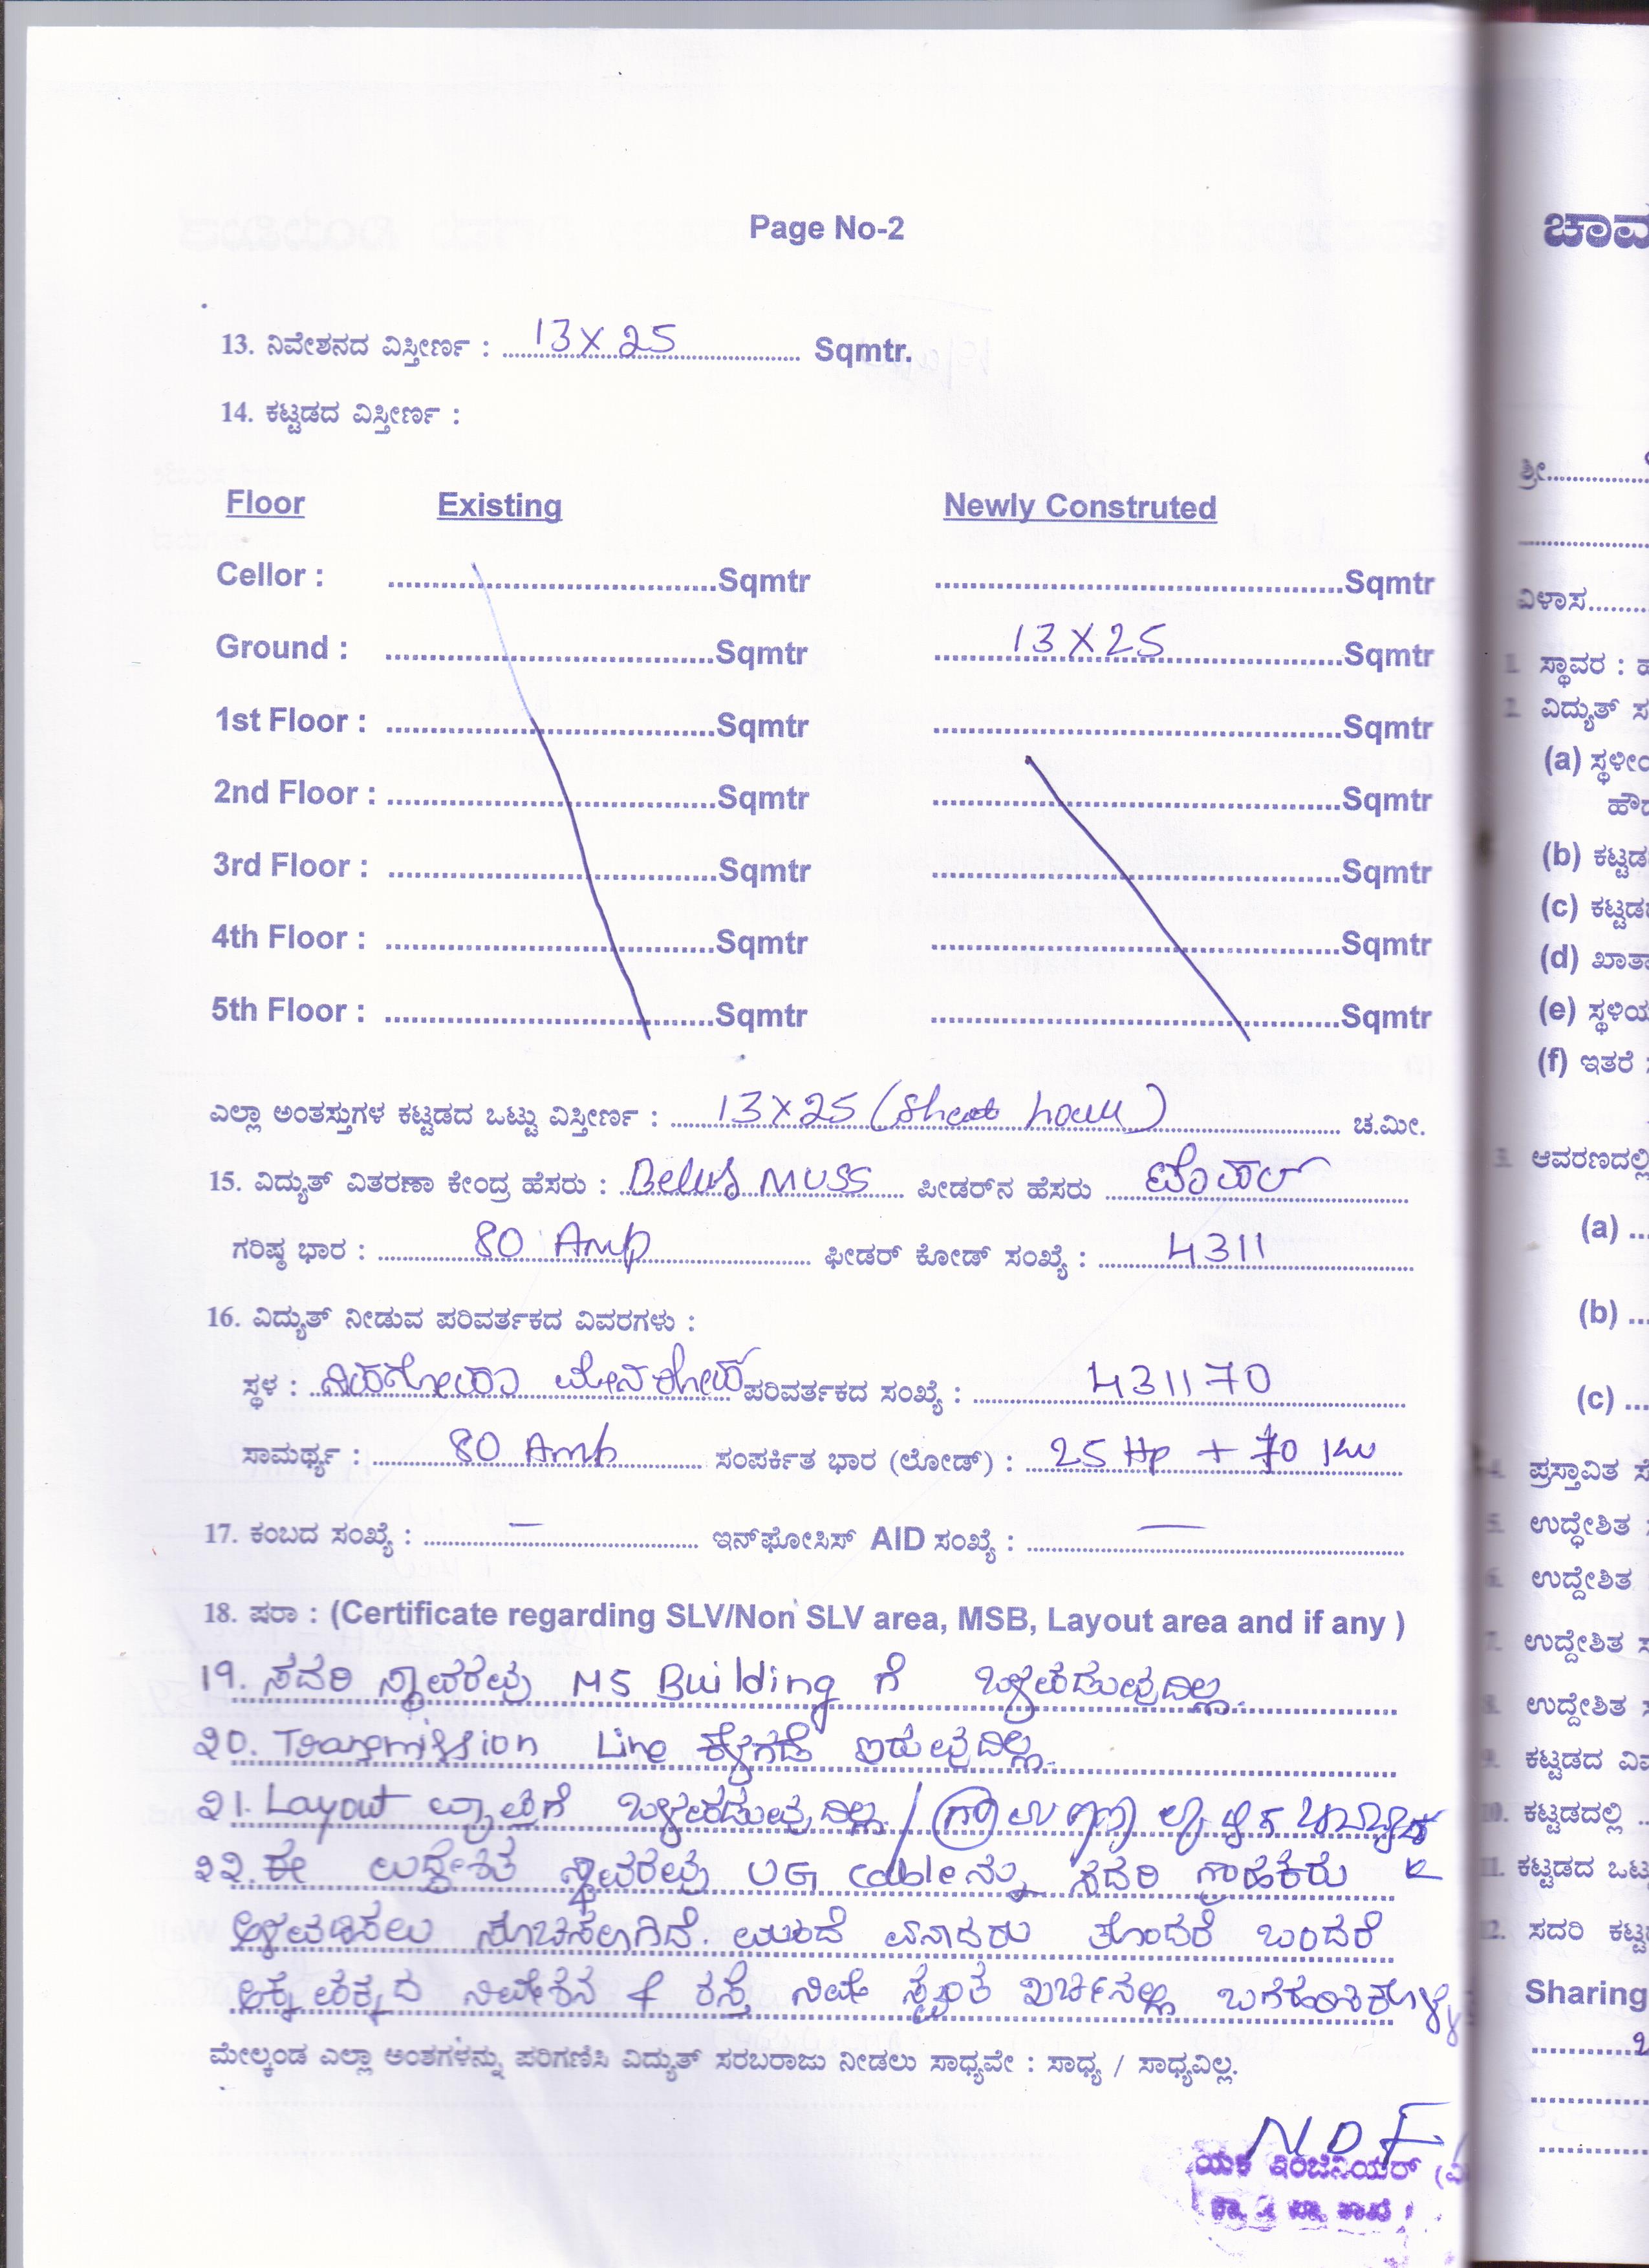 Page No-2
13. ನಿವೇಶನದ ವಿಸ್ತೀರ್ಣ : 13 X 25 Sqmtr.
14. ಕಟ್ಟಡದ ವಿಸ್ತೀರ್ಣ :
Floor Existing Newly Construted
Cellor : Sqmtr Sqmtr
Ground : Sqmtr 13 X 25 Sqmtr
1st Floor : Sqmtr Sqmtr
2nd Floor : Sqmtr Sqmtr
3rd Floor : Sqmtr Sqmtr
4th Floor : Sqmtr Sqmtr
5th Floor : Sqmtr Sqmtr
ಎಲ್ಲಾ ಅಂತಸ್ತುಗಳ ಕಟ್ಟಡದ ಒಟ್ಟು ವಿಸ್ತೀರ್ಣ : 13 X 25 ಚ.ಮೀ.
15. ವಿದ್ಯುತ್ ವಿತರಣಾ ಕೇಂದ್ರ ಹೆಸರು : MUSS ಪೀಡರ್‌ನ ಹೆಸರು
ಗರಿಷ್ಠ ಭಾರ : 80 Amp ಫೀಡರ್ ಕೋಡ್ ಸಂಖ್ಯೆ : 4311
16. ವಿದ್ಯುತ್ ನೀಡುವ ಪರಿವರ್ತಕದ ವಿವರಗಳು :
ಸ್ಥಳ : ಪರಿವರ್ತಕದ ಸಂಖ್ಯೆ : 431170
ಸಾಮರ್ಥ್ಯ : 80 Amp ಸಂಪರ್ಕಿತ ಭಾರ (ಲೋಡ್) : 25 Hp + 70 KW
17. ಕಂಬದ ಸಂಖ್ಯೆ : — ಇನ್‌ಫೋಸಿಸ್ AID ಸಂಖ್ಯೆ : —
18. ಷರಾ : (Certificate regarding SLV/Non SLV area, MSB, Layout area and if any )
19. ಸದರಿ ಸ್ಥಾವರವು MS Building ಗೆ ಒಳಪಡುವುದಿಲ್ಲ.
20. Transmission Line ಕೆಳಗಡೆ ಇರುವುದಿಲ್ಲ.
21. Layout ವ್ಯಾಪ್ತಿಗೆ ಒಳಪಡುವುದಿಲ್ಲ /
22. ಈ ಉದ್ದೇಶಿತ ಸ್ಥಾವರವು UG cable ನ್ನು ಸದರಿ ಗ್ರಾಹಕರು
ಅಳವಡಿಸಲು ಸೂಚಿಸಲಾಗಿದೆ. ಮುಂದೆ ಏನಾದರು ತೊಂದರೆ ಬಂದರೆ
ಅಕ್ಕಪಕ್ಕದ ನಿವೇಶನ & ರಸ್ತೆ ನಿಮ್ಮ ಸ್ವಂತ ಖರ್ಚಿನಲ್ಲಿ
ಮೇಲ್ಕಂಡ ಎಲ್ಲಾ ಅಂಶಗಳನ್ನು ಪರಿಗಣಿಸಿ ವಿದ್ಯುತ್ ಸರಬರಾಜು ನೀಡಲು ಸಾಧ್ಯವೇ : ಸಾಧ್ಯ / ಸಾಧ್ಯವಿಲ್ಲ.
ಯಕ ಇಂಜಿನಿಯರ್
ಶ್ರೀ
ವಿಳಾಸ
1. ಸ್ಥಾವರ :
2. ವಿದ್ಯುತ್
(a)
(b)
(c)
(d)
(e)
(f) ಇತರೆ
3. ಆವರಣದಲ್ಲಿ
(a)
(b)
(c)
4. ಪ್ರಸ್ತಾವಿತ
5. ಉದ್ದೇಶಿತ
6. ಉದ್ದೇಶಿತ
7. ಉದ್ದೇಶಿತ
8. ಉದ್ದೇಶಿತ
9. ಕಟ್ಟಡದ
10. ಕಟ್ಟಡದಲ್ಲಿ
11. ಕಟ್ಟಡದ
12. ಸದರಿ
Sharing